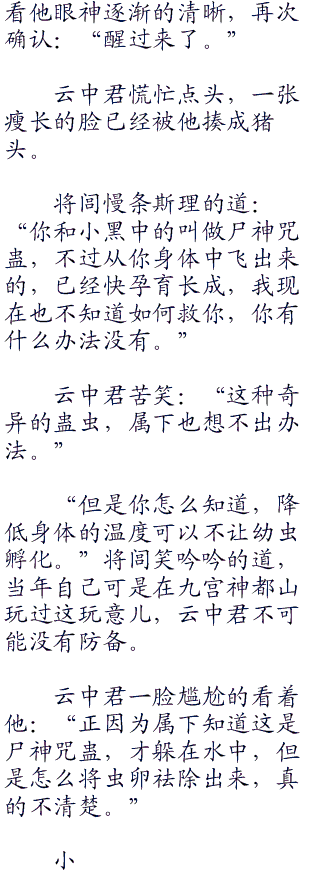 看他眼神逐渐的清晰，再次
确认：“醒过来了。”
云中君慌忙点头，一张
瘦长的脸已经被他揍成猪
头。
将闾慢条斯理的道：
“你和小黑中的叫做尸神咒
蛊，不过从你身体中飞出来
的，已经快孕育长成，我现
在也不知道如何救你，你有
什么办法没有。”
云中君苦笑：“这种奇
异的蛊虫，属下也想不出办
法。”
“但是你怎么知道，降
低身体的温度可以不让幼虫
孵化。”将闾笑吟吟的道，
当年自己可是在九宫神都山
玩过这玩意儿，云中君不可
能没有防备。
云中君一脸尴尬的看着
他：“正因为属下知道这是
尸神咒蛊，才躲在水中，但
是怎么将虫卵祛除出来，真
的不清楚。”
小